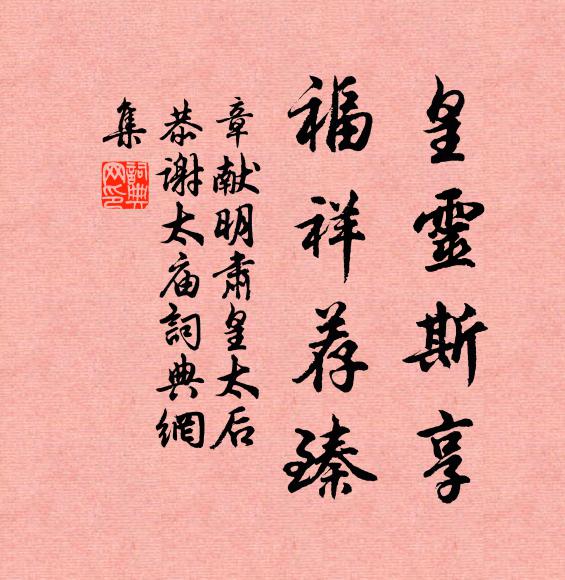 皇靈斯享
福祥荐臻
章献明肅皇太后
恭谢太庙詞典網
集
詞典
网印